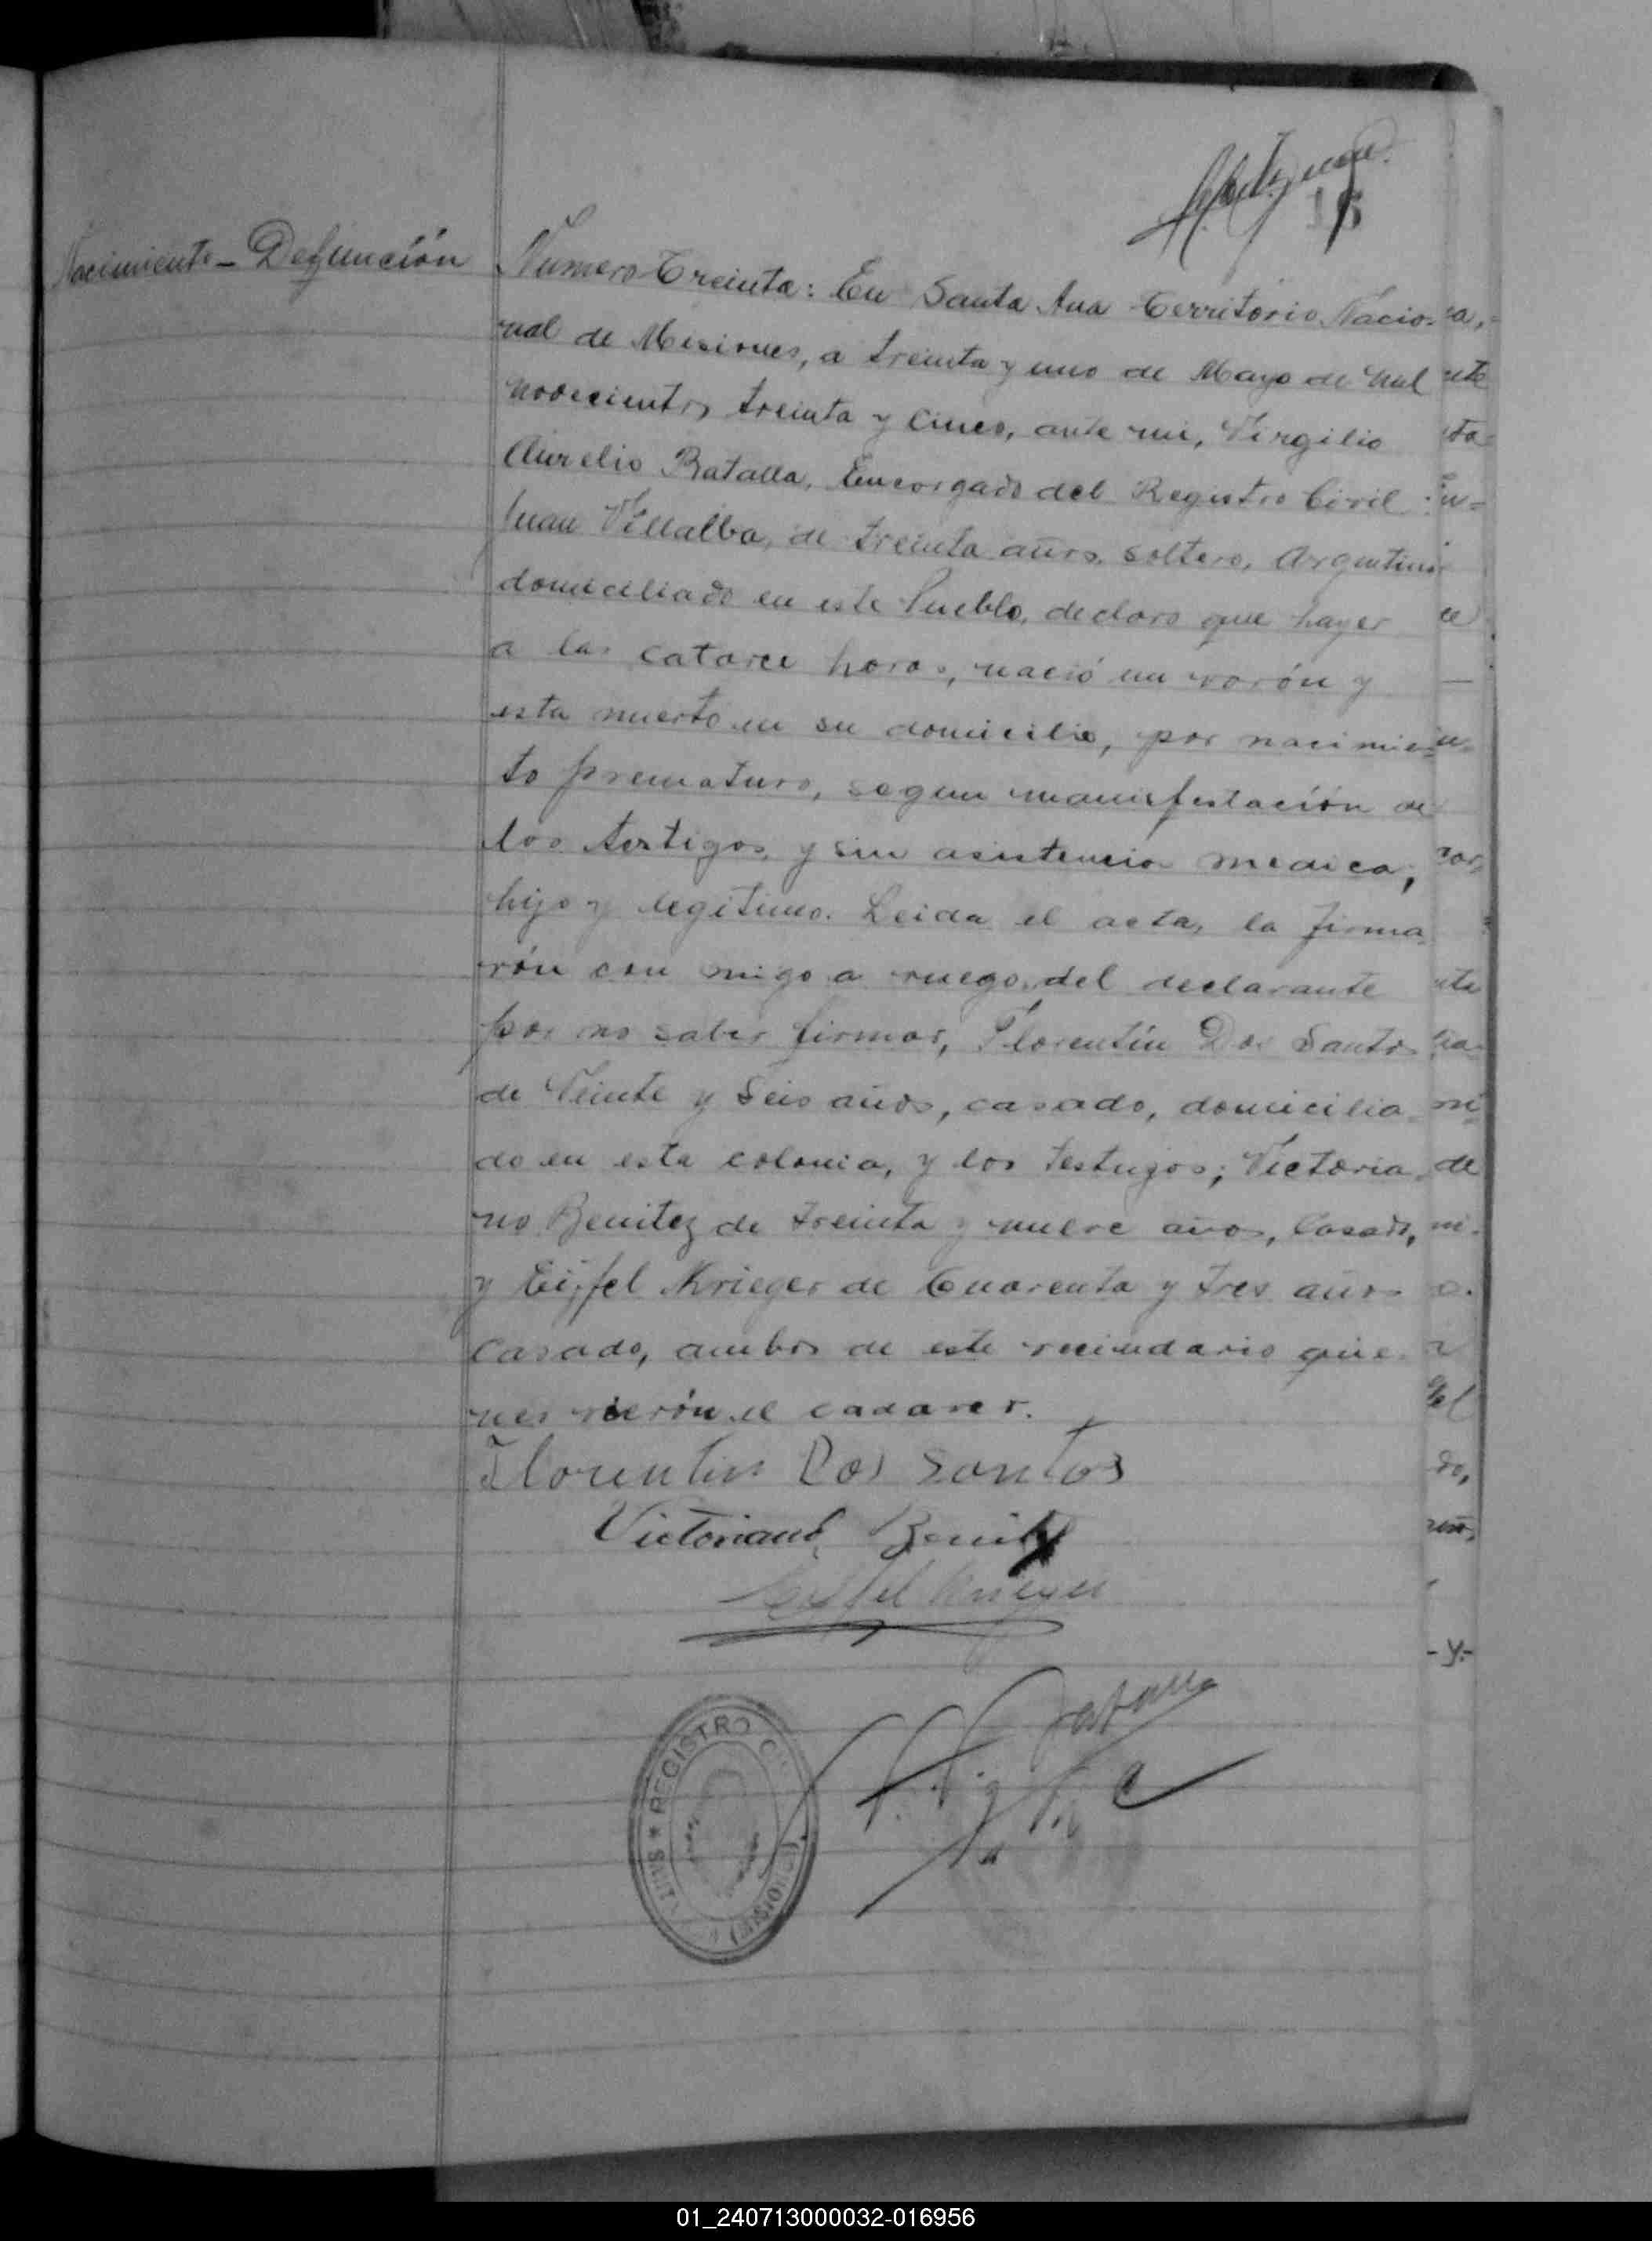 15
Nacimiento - Defunción
Numero Treinta: En Santa Ana Territorio Nacio-
nal de Misiones, a treinta y uno de Mayo de mil
novecientos treinta y cinco, ante mi, Virgilio
Aurelio Batalla, Encorgado del Registro Civil
Juan Villalba, de treinta años, soltero, Argentino
domiciliado en este Pueblo, declaro que hayer
a las catorce horas, nació un varón y
esta muerto en su domicilio, por nacimien-
to prematuro, segun manisfestación de
los testigos, y sin asistencia medica,
hijo y legitimo. Leida el acta, la firma
rón con migo a ruego del declarante
por no saber firmar, Florentín Dos Santos
de Veinte y Seis años, casado, domicilia-
do en esta colonia, y los testigos; Victoria
no Benitez de treinta y nueve años, Casado,
y Eiffel Krieger de Cuarenta y tres años
Casado, ambos de este vecindario quie
nes vierón el cadaver.
Florentin Dos Santos
Victoriano Benitez
Eiffel Krieger
REGISTRO
(MISIONES)
01_240713000032-016956